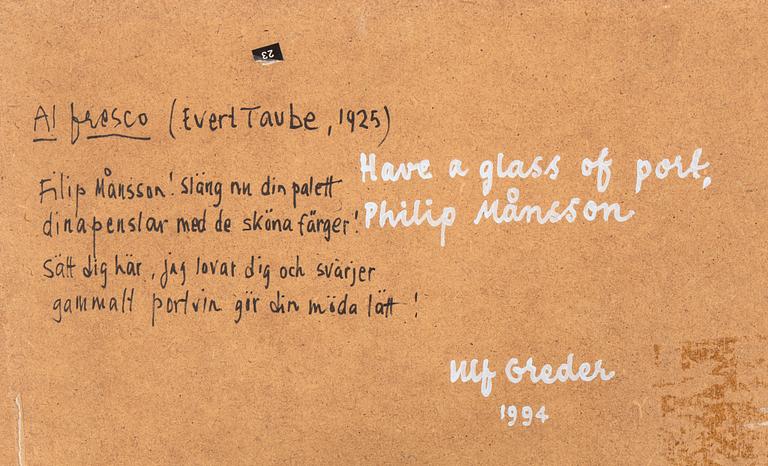 23
Al fresco (Evert Taube, 1925)
Filip Månsson! Släng nu din palett
dina penslar med de sköna färger!
Sätt dig här, jag lovar dig och svärjer
gammalt portvin gör din möda lätt!
Have a glass of port,
Philip Månsson
Ulf Greder
1994